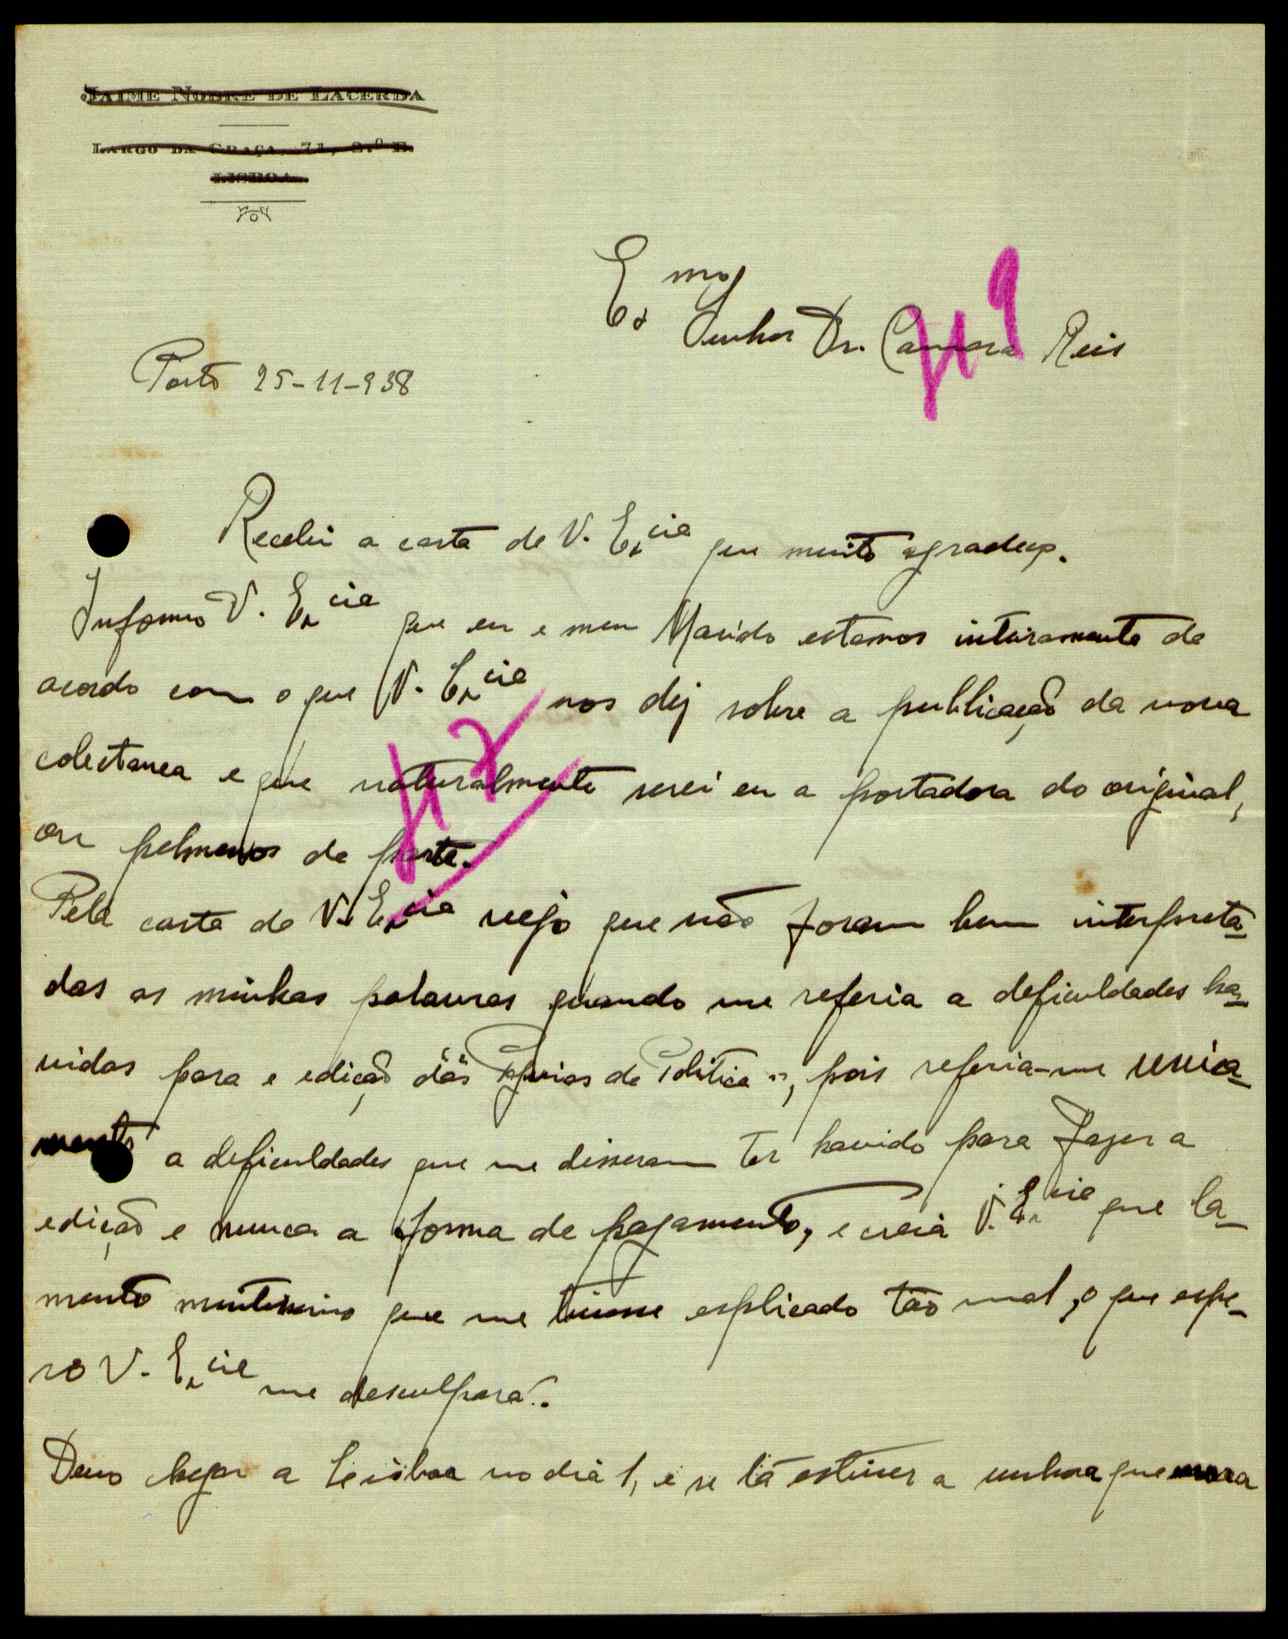 JAIME NOBRE DE LACERDA
LARGO DA GRAÇA, 71, 2.º E.
LISBOA
Ex.mo
Senhor Dr. Camara Reis
Porto 25-11-938
Recebi a carta de V. Ex.cia que muito agradeço.
Informo V. Ex.cia que eu e meu Marido estamos inteiramente de
acordo com o que V. Ex.cia nos diz sobre a publicação da nova
colectanea e que naturalmente serei eu a portadora do original,
ou pelmenos de parte.
Pela carta de V. Ex.cia vejo que não foram bem interpreta-
das as minhas palavras quando me referia a deficuldades ha-
vidas para e edição das Páginas de Politica", pois referia-me unica-
mente a deficuldades que me disseram ter havido para fazer a
edição e nunca a forma de pagamento, e creia V. Ex.cia que la-
mento muitissimo que me tivesse esplicado tão mal, o que espe-
ro V. Ex.cia me desculpará.
Devo chegar a Lisboa no dia 1, e se lá estiver a senhora que mora